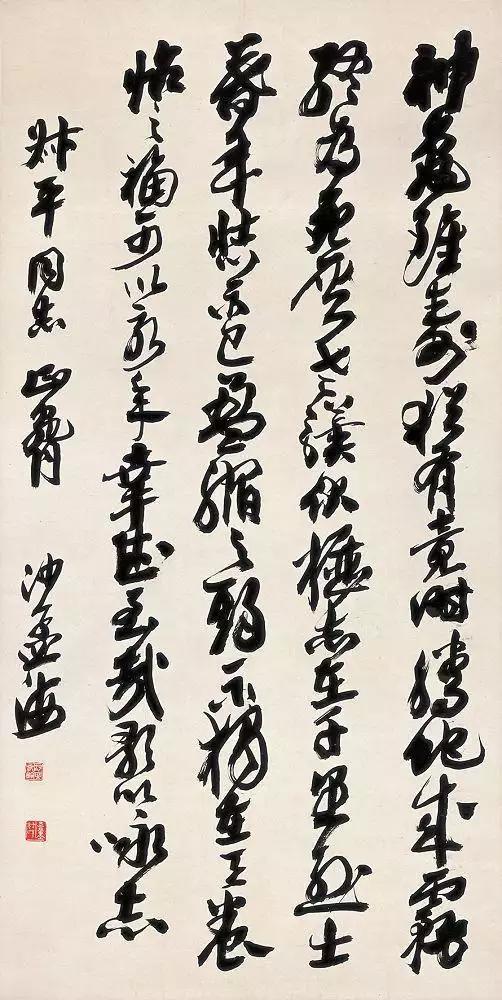 神龜雖壽猶有竟時騰蛇成霧
終為死灰老驥伏櫪志在千里烈士
暮年壯心不已盈縮之期不獨在天養
怡之福可以永年幸甚至哉歌以詠志
叔平同志正腕 沙孟海